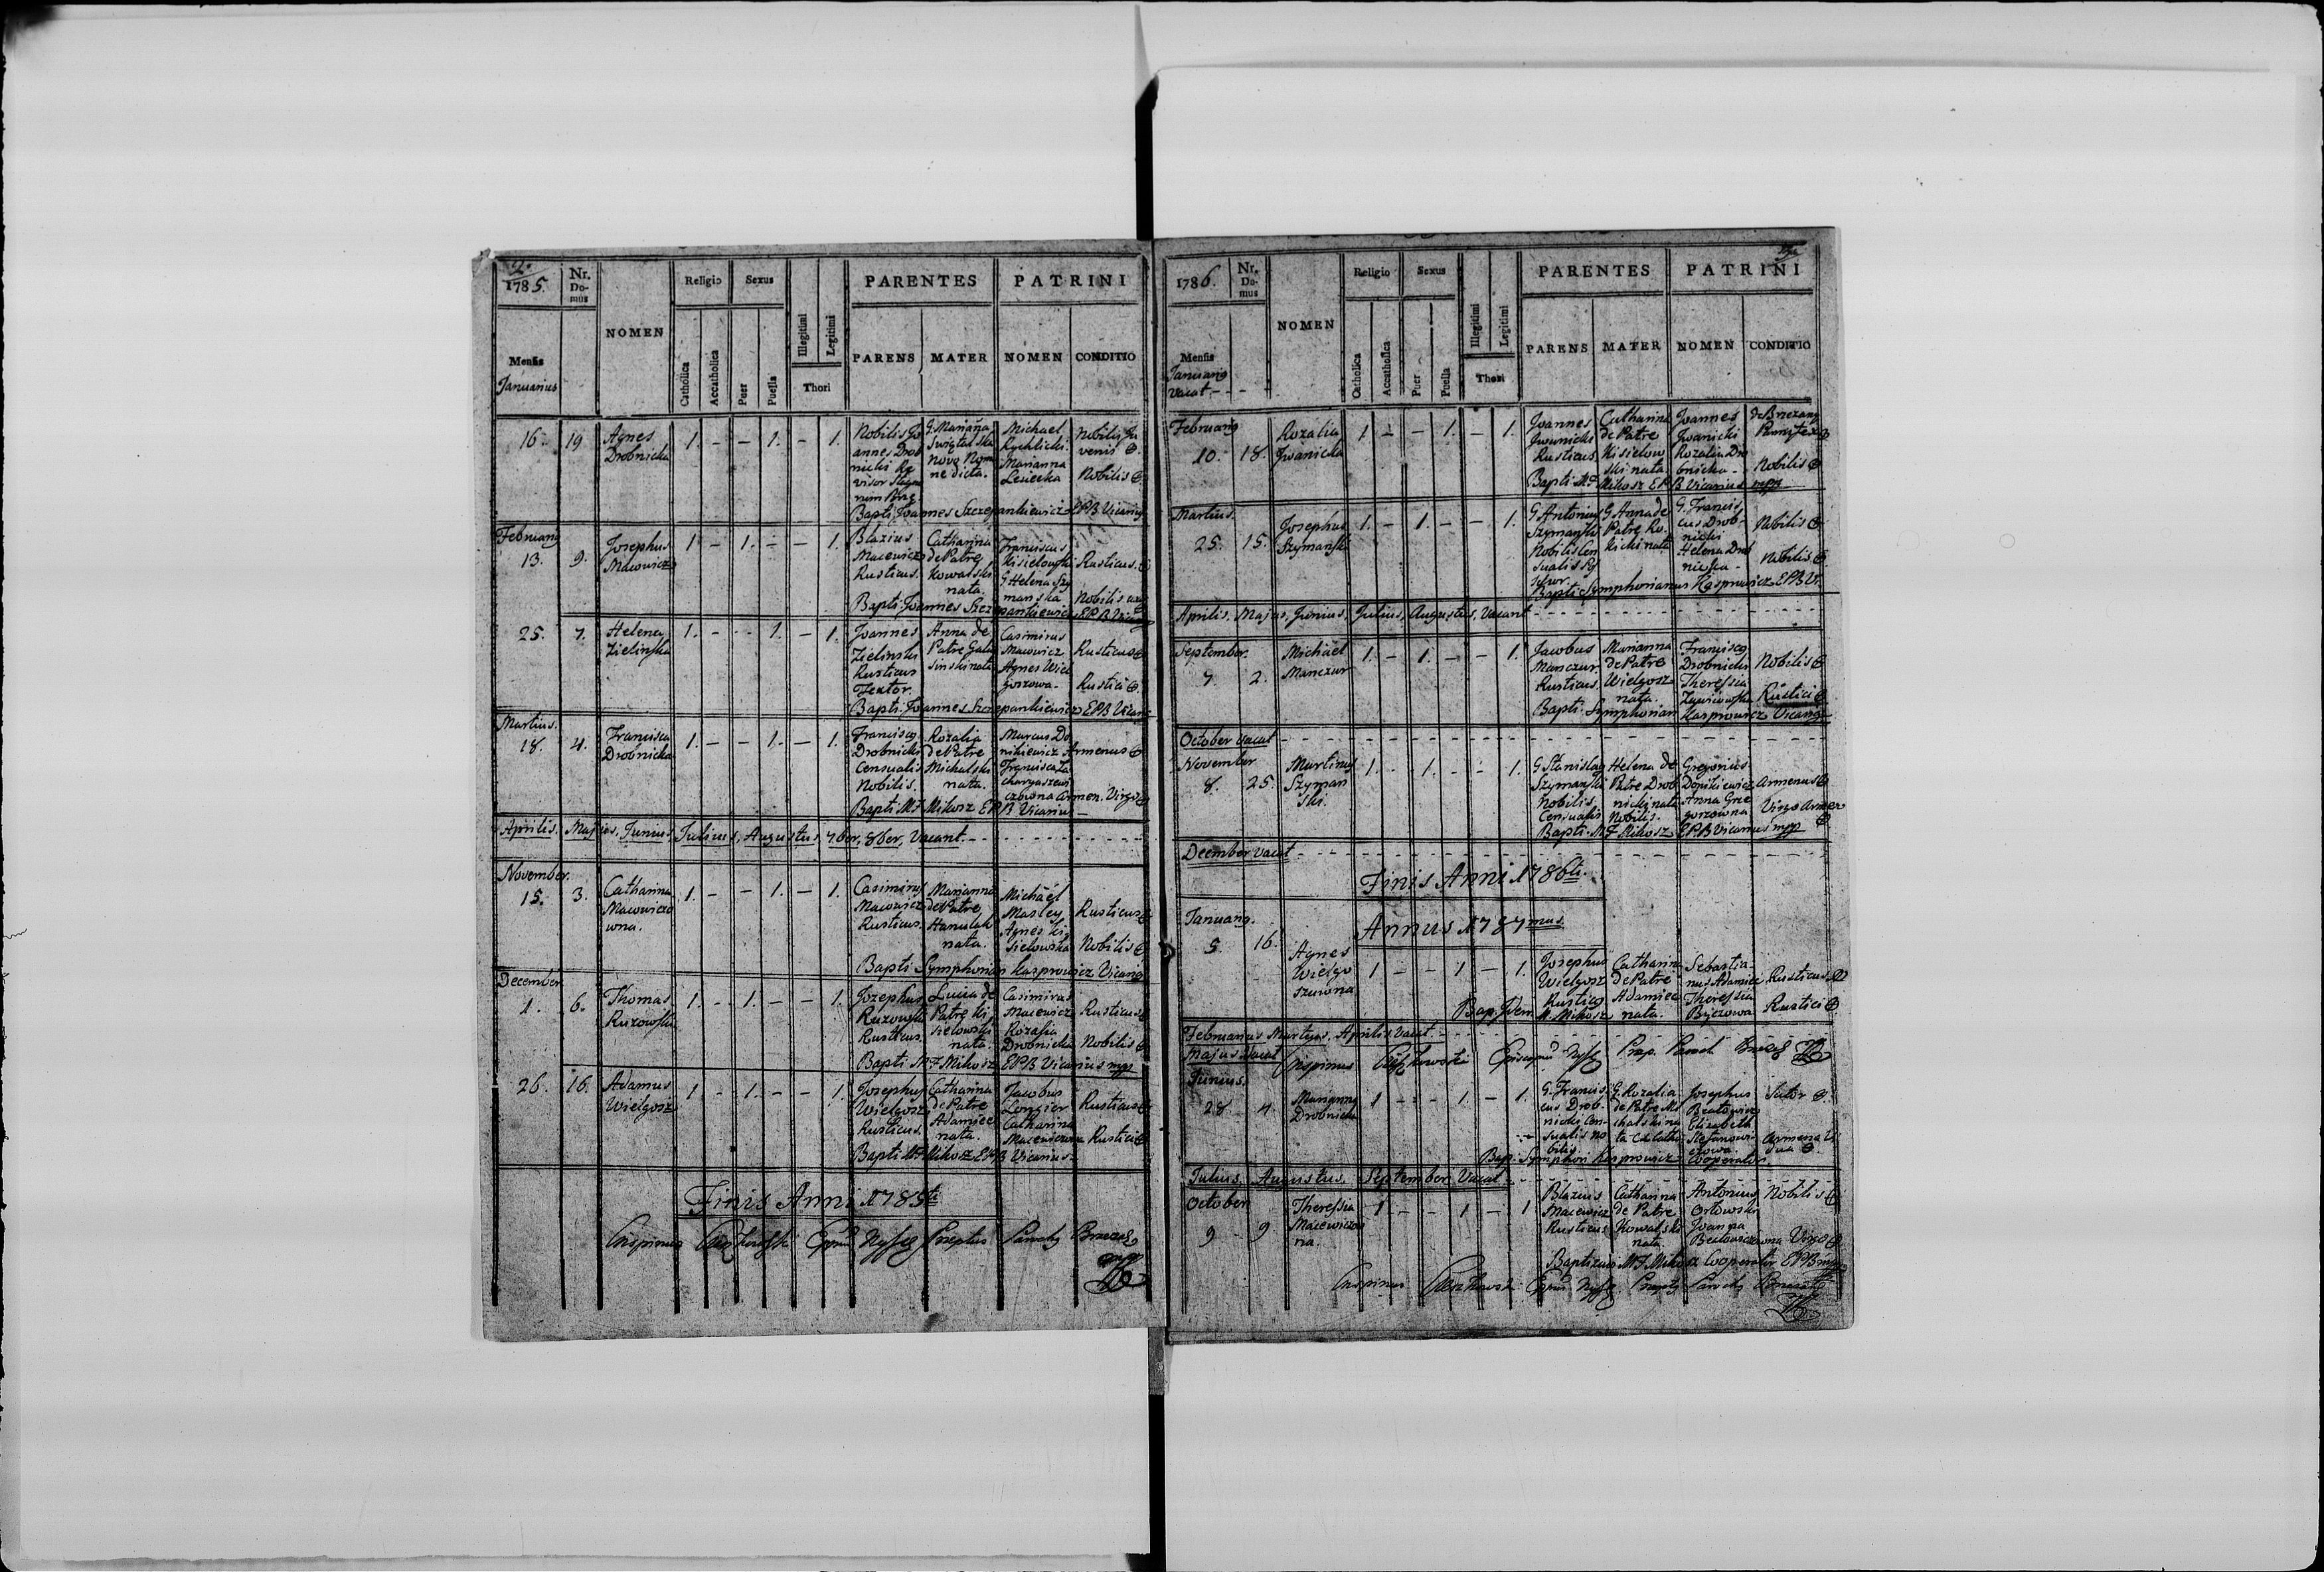 2.
1785.
Nr. Domus
NOMEN
Religio
Sexus
PARENTES
PATRINI
Mensis
Januarius
Catholica
Accatholica
Puer
Puella
Illegitimi
Legitimi
Thori
PARENS
MATER
NOMEN
CONDITIO
16. 19 Agnes Drobnicka 1. - - 1. - 1.
Nobilis Jo
annes Drob
nicki Re
visor
G. Marianna
Nove Nom
ne dicta.
Michael
Rychlicki.
Marianna
Lesiecka
Nobilis Ju
venis
Nobilis
Bapti. Joannes Szczepankiewicz EPB Vicarig
Februarig
13. 9. Josephus Macewicz 1. - 1. - - 1.
Blazius
Macewicz
Rusticus.
Catharina
de Patre
Kowalski
nata.
Franciscus
Kisielowski
G Helena Szy
manska
Rusticus.
Nobilis
Bapti. Joannes Szczepankiewicz EPB Vicarig
25. 7. Helena Zielinska 1. - - 1. - 1.
Joannes
Zielinski
Rusticus
Textor.
Anna de
Patre Gala
sinski nata
Casimirus
Macewicz
Agnes Wiel
goszowa.
Rusticus
Rustici
Bapti. Joannes Szczepankiewicz EPB Vicarig
Martius.
18. 4. Francisca Drobnicka 1. - - 1. - 1.
Franciscg
Drobnicki
Censualis
Nobilis.
Rozalia
de Patre
Michalski
nata.
Marcus Do
nikiewicz
Francisca Za
charyaszewi
czowna
Armenus
Armen. Virgo
Bapti. M.F. Mikosz EPB Vicarius
Aprilis, Majus, Junius, Julius, Augustus, 7ber, 8ber, Vacant.
November.
15. 3. Catharina Macewiczo wna. 1. - - 1. - 1.
Casimirus
Macewicz
Rusticus.
Marianna
de Patre
Hanulak
nata.
Michaël
Masley
Agnes Ki
sielowska
Rusticus
Nobilis
Bapti Symphorian Kasprowicz Vicarig
December
1. 6. Thomas Ruzowski 1. - 1. - - 1.
Jozephus
Ruzowski
Rusticus.
Lucia de
Patre Ki
sielowski
nata.
Casimirus
Macewicz
Rozalia
Drobnicka
Rusticus
Nobilis
Bapti M.F Mikosz EPB Vicarius mpp
26. 16. Adamus Wielgosz 1. - 1. - - 1.
Josephus
Wielgosz
Rusticus.
Catharina
de Patre
Adamiec
nata.
Jacobus
Longier
Catharina
Macewiczowa
Rusticus
Rustici
Bapti M.F. Mikosz EPB Vicarius
Finis Anni 1785ti
1786.
Nr. Domus
NOMEN
Religio
Sexus
PARENTES
PATRINI
Mensis
Januarig
vacat.
Catholica
Accatholica
Puer
Puella
Illegitimi
Legitimi
Thori
PARENS
MATER
NOMEN
CONDITIO
Februarig
10. 18. Rozalia Jwanicka 1 - - 1. - 1.
Joannes
Jwanicki
Rusticus
Catharina
de Patre
Kisielow
ski nata.
Joannes
Jwanicki
Rozalia Dro
bnicka.
de Brzezany
Nobilis
Bapti M.F. Mikosz EPB Vicarius mpp
Martius.
25. 15. Josephus Szymański 1. - 1. - - 1.
G Antonius
Szymański
Nobilis Cen
sualis
G Anna de
Patre Ro.
nata
G. Francis
cus Drob-
nicki
Helena Dro
bnicka
Nobilis
Nobilis
Bapti Symphorianus Kasprowicz EPB Vi.
Aprilis. Majus. Junius. Julius, Augustus, Vacant
September.
7. 2. Michaël Manczur 1. - 1. - - 1.
Jacobus
Manczur
Rusticus.
Marianna
de Patre
Wielgosz
nata.
Franciscg
Drobnicki
Theressia
Nobilis
Rustici
Bapti. Symphorian Kasprowicz Vicarig
October vacat
November
8. 25. Martinus Szyman ski. 1. - 1. - - 1.
G Stanislag
Szymański
Nobilis
Censualis
Helena de
Patre Drob
nicki nata
Nobilis.
Gregorius
Donikiewicz
Anna Grze
gorzowna
Armenus
Virgo Armen
Bapti. M.F Mikosz EPB Vicarius mpp
December vacat
Finis Anni 1786ti.
Annus 1787mus.
Januarig.
5 16. Agnes Wielgo szowna 1 - - 1 - 1.
Josephus
Wielgosz
Rusticg
Catharina
de Patre
Adamiec
nata.
Sebastia-
nus Adamiec
Theressia
Byczowa
Rusticus
Rustici
Bap. Idem M. Mikosz
Februarius Martius. Aprilis Vacat.
Majus Vacat
Junius.
28 4 Marianna Drobnicka 1 - - 1 - 1
G. Francis
cus Drob-
nicki Cen-
sualis no
bilis
G. Rozalia
de Patre Mi
chalski na
ta
Josephus
Elizabeth
Stefanowi
czowa
Sutor
Armena
Bap. Symphori Kasprowicz Cooperator
Julius. Augustus. September. Vacat
October
9 9 Theressia Macewiczow na. 1 - - 1 - 1
Blazius
Macewicz
Rusticus
Catharina
de Patre
Kowalski
nata.
Antonius
Orłowski
Joanna
Nobilis
Virgo
Baptizavit M F Mikosz Cooperator EPB mpp